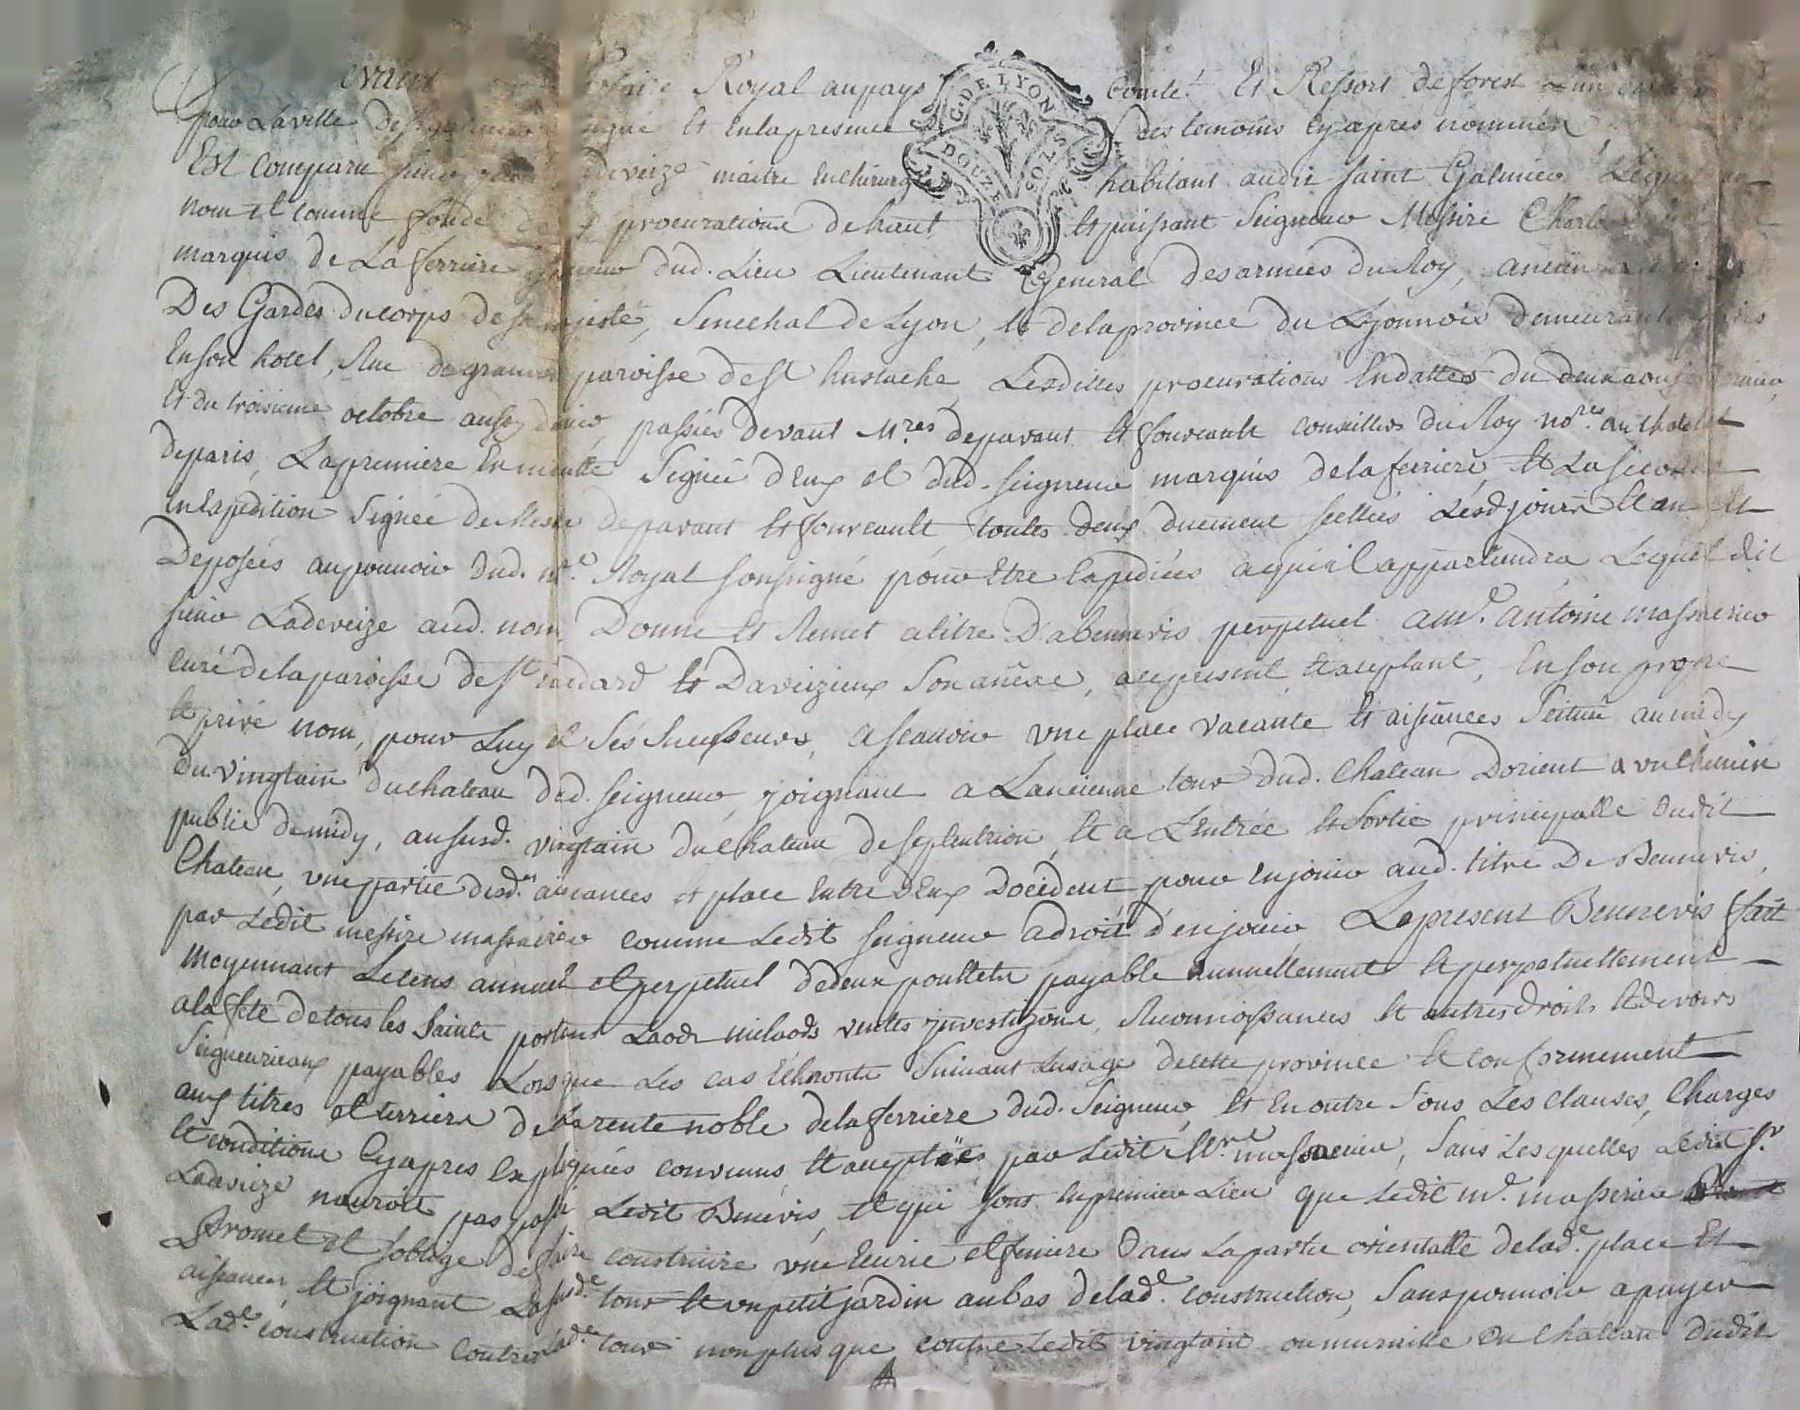 Royal au pays Comté et Ressort de forest
pour La ville de et en la presence des temoins cy apres nommés
Est comparu sieur maitre en chirurgie habitant audit saint Galmier Lequel au
nom et comme fondé de procurations de haut et puissant Seigneur Messire Charles
marquis de La ferriere dud. Lieu Lieutenant General des armées du Roy, ancien
Des Gardes du corps de sa majesté, Senechal de Lyon, et de la province du Lyonnois demeurant a paris
En son hotel, Rue de grammont paroisse de St Eustache, Lesdittes procurations En datte du deux aoust dernier,
Et du troisieme octobre aussy dernier, passées devant Mres deparant et foureault conseillers du Roy nores. au Chatelet
de paris, La premiere En minutte Signée d'Eux et dud. seigneur marquis de la ferriere, et La seconde
en Expedition Signée de Mesre deparant et foureault, toutes deux duement scellées Lesd. jours et an et
Deposées au pouvoir dud. nre. Royal soussigné pour Etre Expediées a qui il appartiendra Lequel dit
sieur Ladeveize aud. nom Donne et Remet a titre D'abenevis perpetuel a mre. antoine massacrier
curé de la paroisse de St medard et Daveizieux Son annexe, cy present et aceptant, En son propre
et privé nom, pour Luy et Ses Sucesseurs, a scavoir une place vacante et aisances Scituée au midy
Du vingtain du chateau dud. seigneur, joignant a L'ancienne tour dud. Chateau D'orient a un Chemin
public de midy, au susd. vingtain du Chateau de septentrion, et a L'entrée et Sortie principalle dudit
Chateau, une partie desd.es aisances et place Entre d'Eux D'occident pour En jouir aud. titre De Benevis,
par Ledit messire massacrier comme Ledit seigneur a droit d'en jouir Le present Benevis fait
moyennant Le cens annuel et perpetuel de deux poullets payable annuellement et perpetuellement
a la fete de tous les Saints portant Laods milaods ventes investizons, Reconnoissances et autres droits et devoirs
Seigneuriaux payables Lorsque Les cas Echeronts Suivant L'usage de cette province et conformement
aux titres et terriers de La rente noble de la ferriere dud. Seigneur, Et En outre Sous Les clauses, Charges
et conditions Cy apres Expliquées convenues et aceptées par Ledit Mre massacrier, Sans Lesquelles Ledit Sr
Ladeveize n'auroit pas passé Ledit Benevis, et qui sont En premier Lieu que Ledit mre. massacrier
Promet et s'oblige de faire construire une Ecurie et feniere Dans La partie orientalle de lad.e place Et
aisances, Et joignant La susd.e tour et un petit jardin au bas de lad.e construction, Sans pouvoir apuyer
Lad.e construction Contre lad.e tour non plus que contre Ledit vingtain ou muraille du Chateau dudit
C. DE LYON
DOUZE SOLS